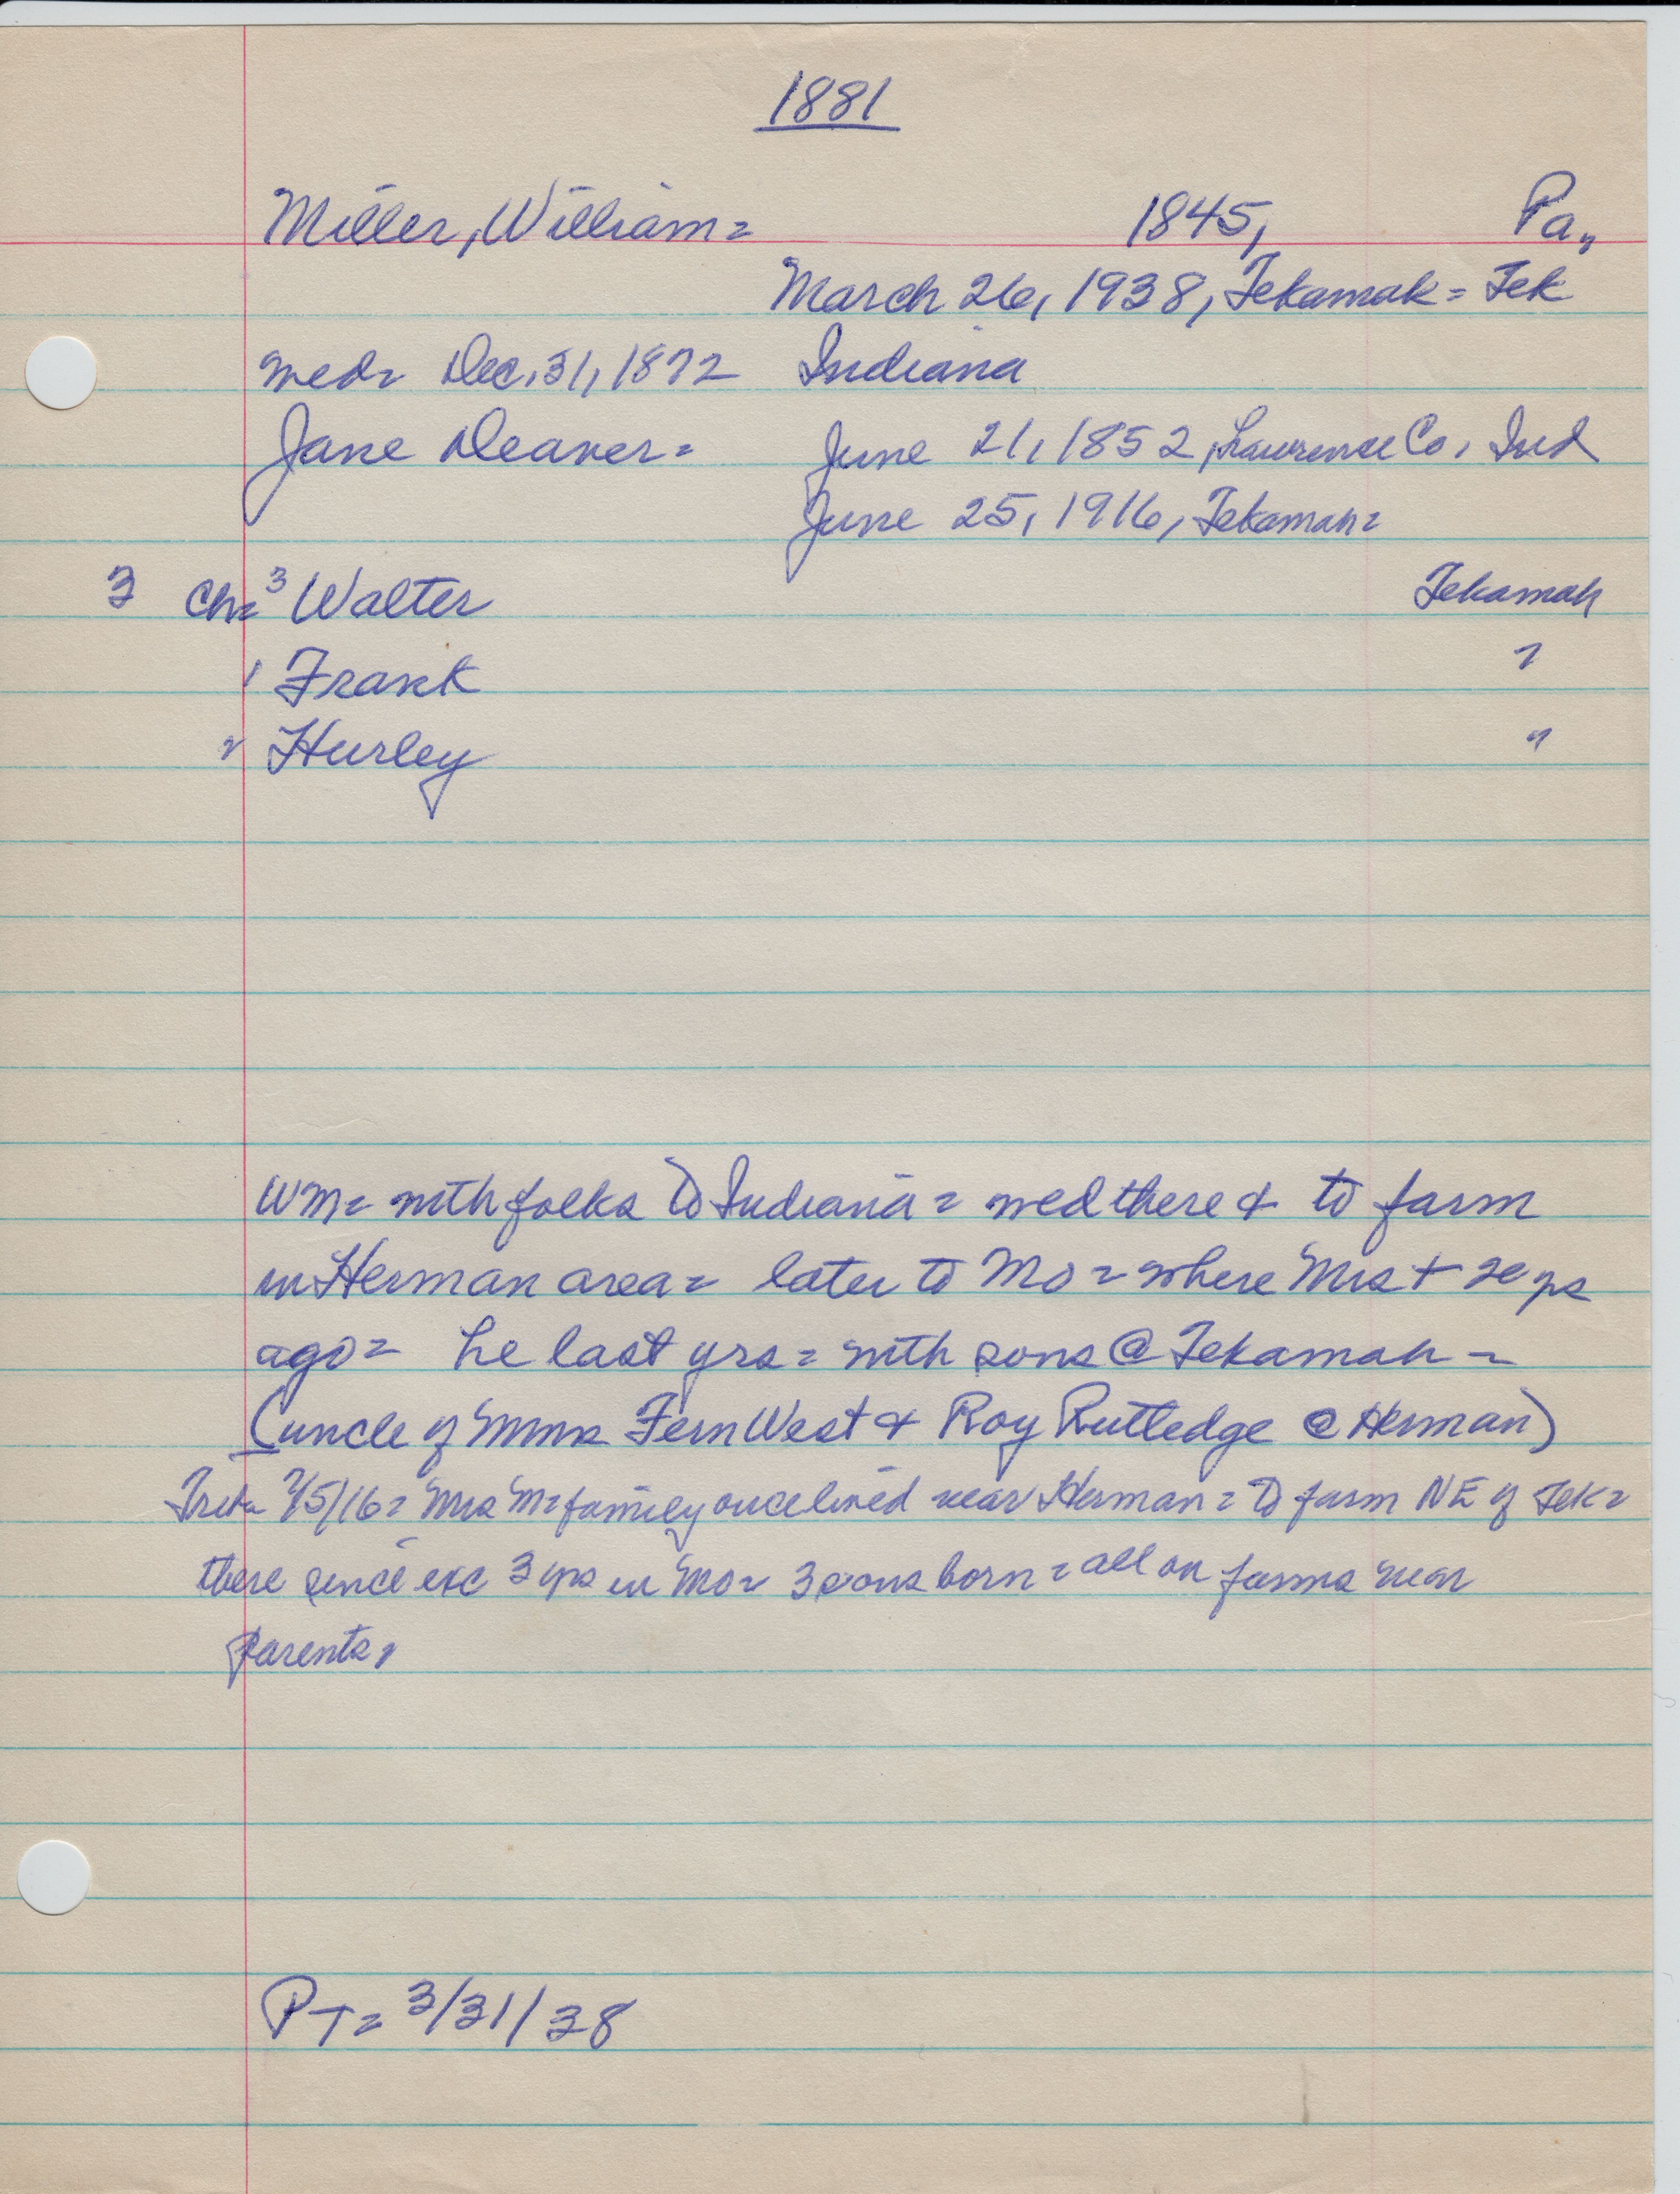 1881
Miller, William= 1845, Pa,,
March 26, 1938, Tekamah= Tek
wed= Dec. 31, 1872 Indiana
Jane Deaver= June 21, 1852, Lawrence Co, Ind
June 25, 1916, Tekamah=
3 Ch= 3 Walter Tekamah
1 Frank "
2 Hurley "
Wm= with folks to Indiana= wed there & to farm
in Herman area= later to Mo= where Mrs + yrs
ago= he last yrs= with sons @ Tekamah=
(uncle of Mmes Fern West & Roy Rutledge @ Herman)
/5/16= Mrs M= family once lived near Herman= to farm NE of Tek=
there since exc 3 yrs in Mo= 3 sons born= all on farms near
parents,
PT= 3/31/38